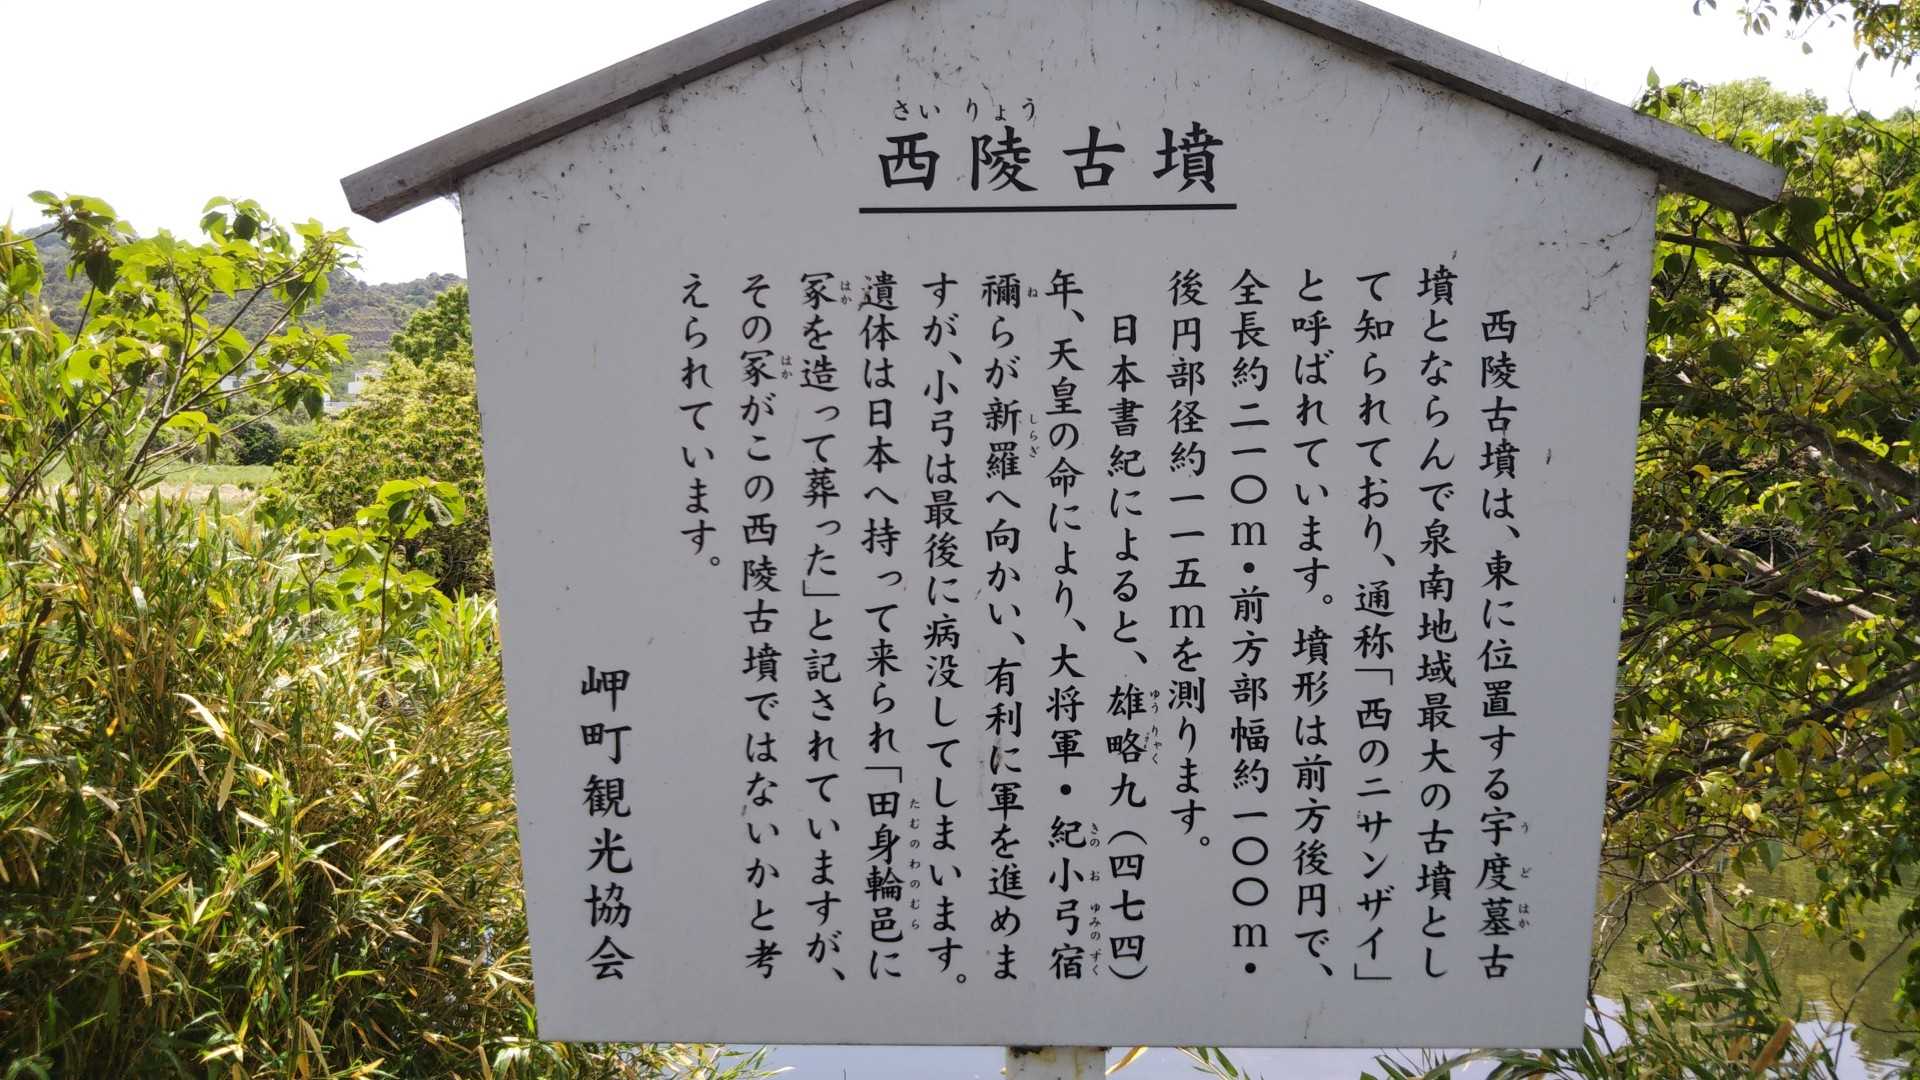 さいりょう
西陵古墳
西陵古墳は、東に位置する宇度墓古
うどはか
墳とならんで泉南地域最大の古墳とし
て知られており、通称「西のニサンザイ」
と呼ばれています。墳形は前方後円で、
全長約二一〇m・前方部幅約一〇〇m・
後円部径約一一五mを測ります。
日本書紀によると、雄略九(四七四)
ゆうりゃく
年、天皇の命により、大将軍・紀小弓宿
きのおゆみのすく
禰らが新羅へ向かい、有利に軍を進めま
ね しらぎ
すが、小弓は最後に病没してしまいます。
遺体は日本へ持って来られ「田身輪邑に
たむのわのむら
冢を造って葬った」と記されていますが、
はか
その冢がこの西陵古墳ではないかと考
はか
えられています。
岬町観光協会